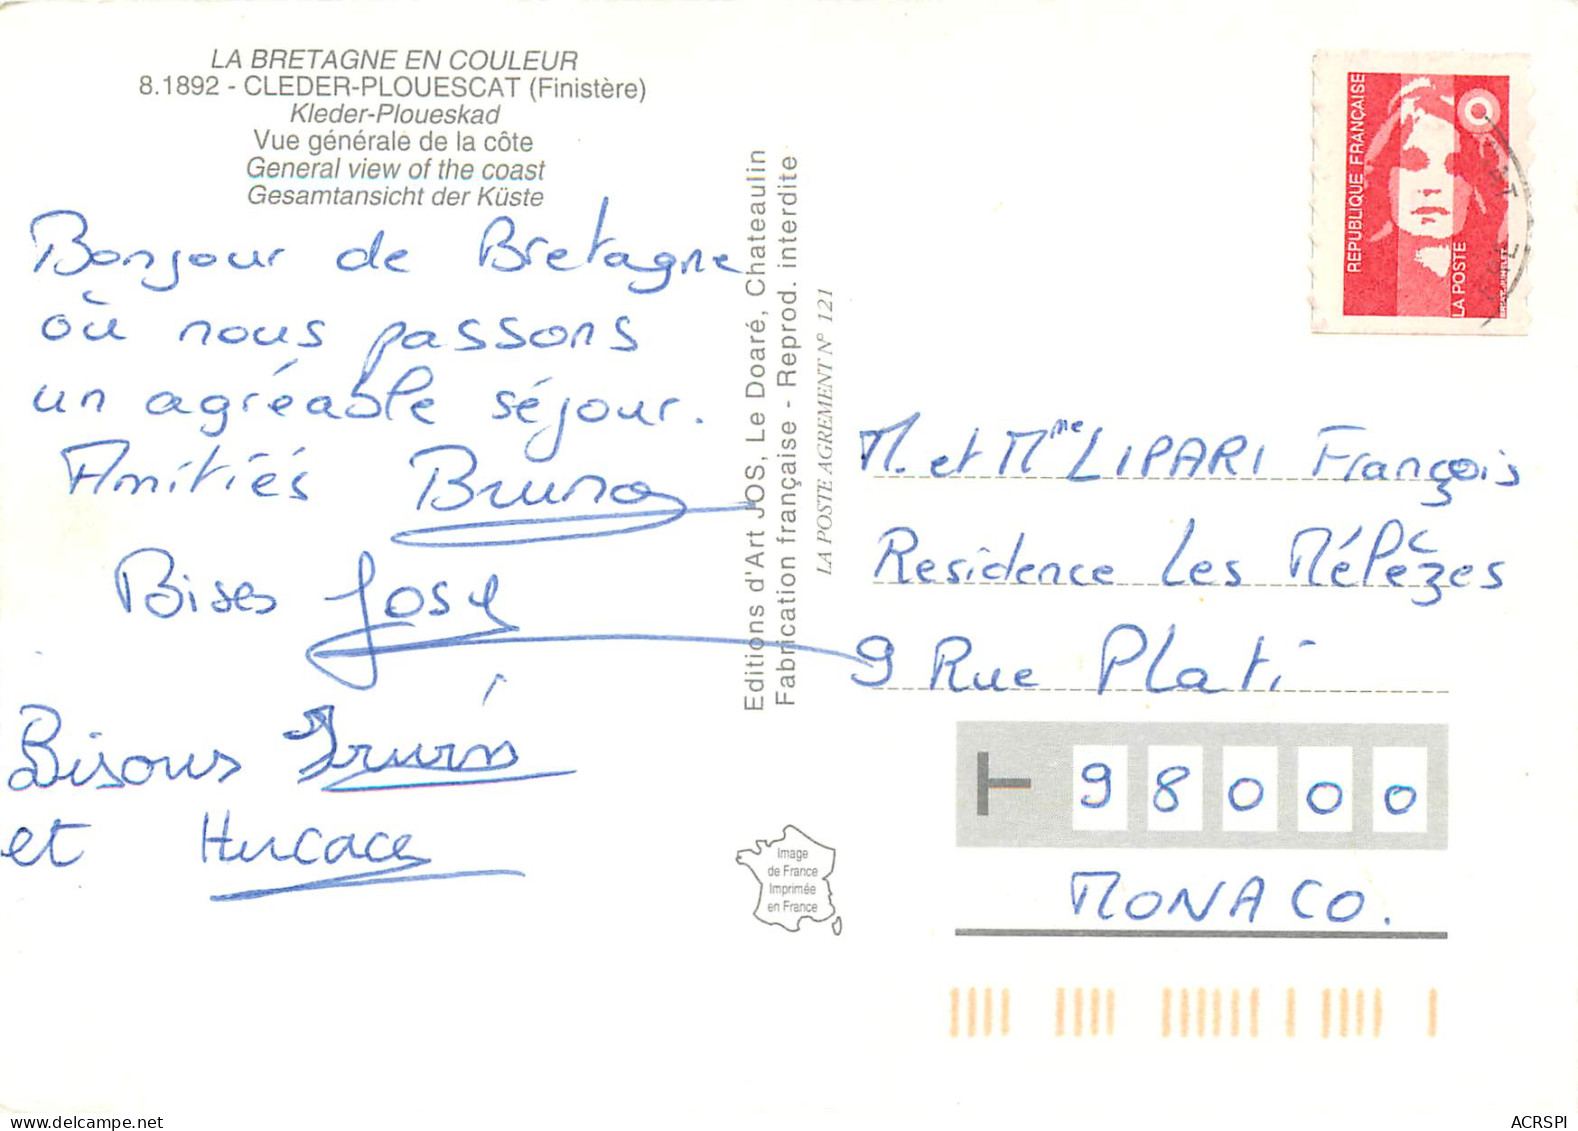 LA BRETAGNE EN COULEUR
8.1892 - CLEDER-PLOUESCAT (Finistère)
Kleder-Ploueskad
Vue générale de la côte
General view of the coast
Gesamtansicht der Küste
Bonjour de Bretagne
où nous passons
un agréable séjour.
Amitiés Bruno
Bises José
Bisous
et
Editions d'Art JOS, Le Doaré, Chateaulin
Fabrication française - Reprod. interdite
LA POSTE AGREMENT N° 121
REPUBLIQUE FRANÇAISE
LA POSTE
M. et Mme LIPARI François
Residence Les Mélèzes
9 Rue Plati
98000
MONACO.
Image
de France
Imprimée
en France
ACRSPI